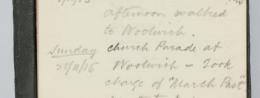 afternoon walked
to Woolwich.
Sunday church Parade at
Woolwich – Took
charge of "March Past"